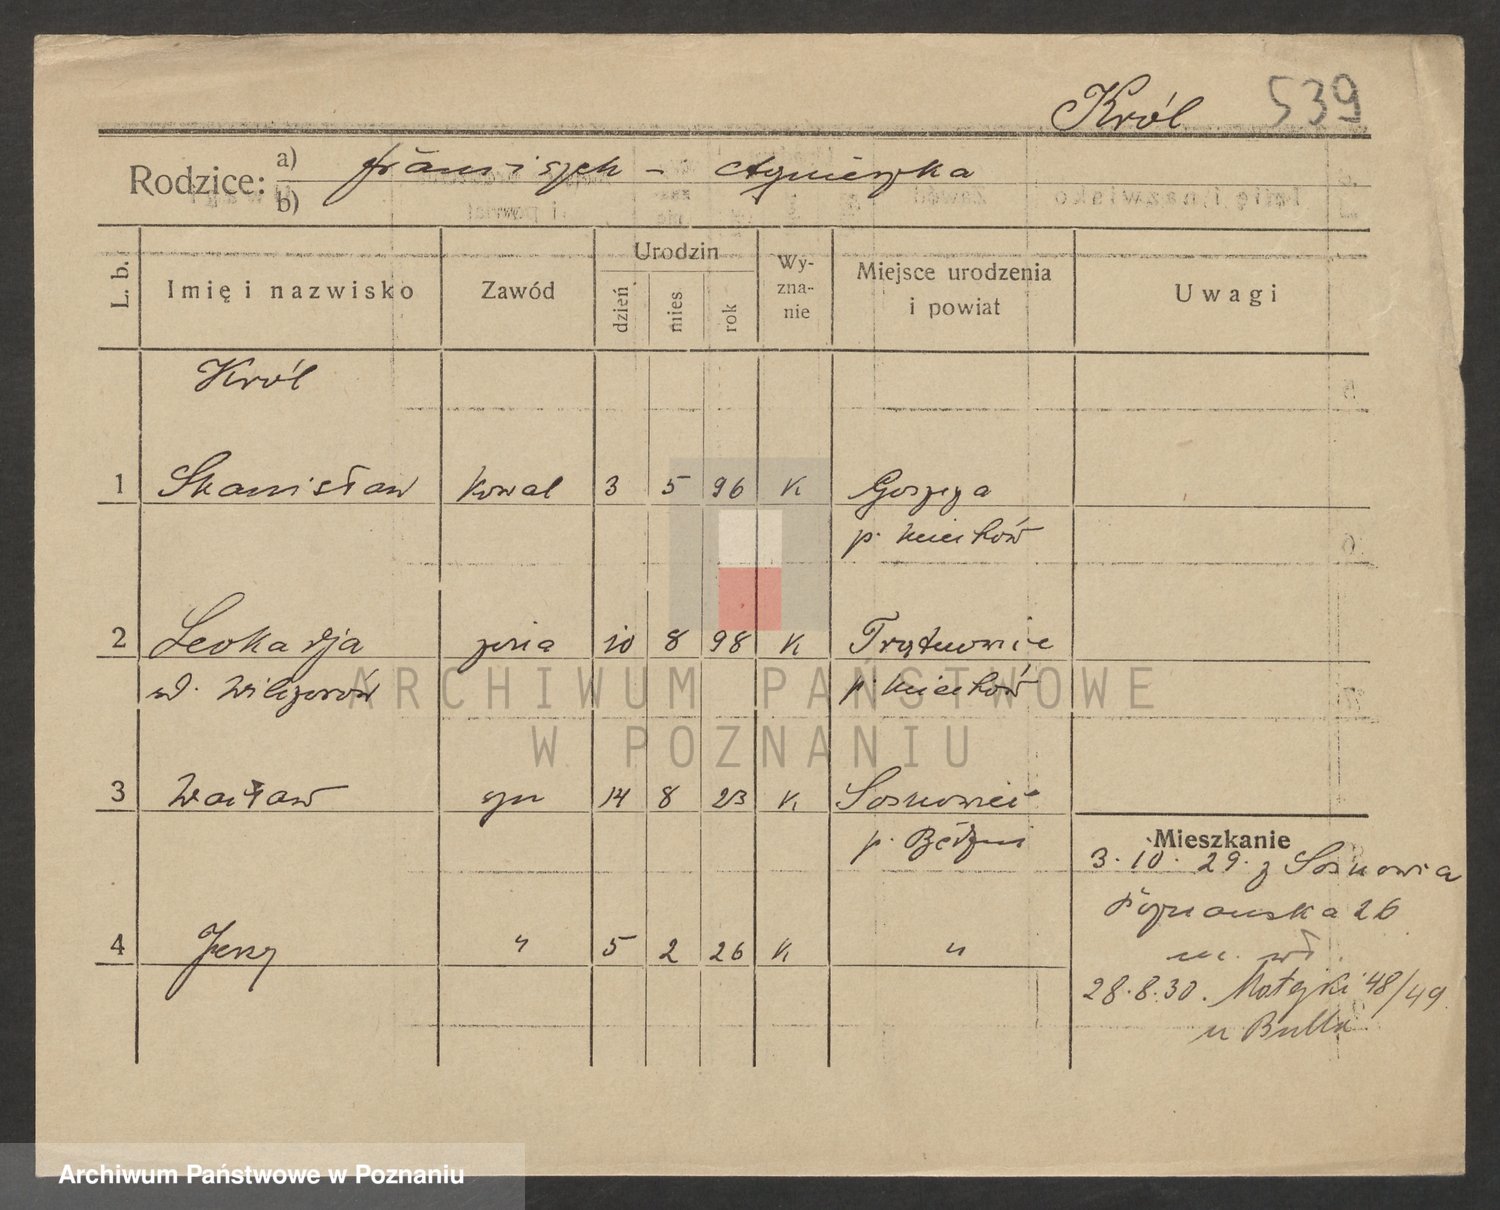 Król 539
Rodzice: a) Franciszek – Agnieszka
b)
L. b. Imię i nazwisko Zawód Urodzin dzień mies rok Wyznanie Miejsce urodzenia i powiat Uwagi
Król
1 Stanisław kowal 3 5 96 K
p. Miechów
2 Leokadja żona 10 8 98 K
p. Miechów
3 Wacław syn 14 8 23 K Sosnowiec
p. Będzin
4 Jerzy " 5 2 26 K "
Mieszkanie
3. 10. 29. z Sosnowca
Poznańska 26
28. 8. 30. Matejki 48/49
u Bulla
ARCHIWUM PAŃSTWOWE
W POZNANIU
Archiwum Państwowe w Poznaniu